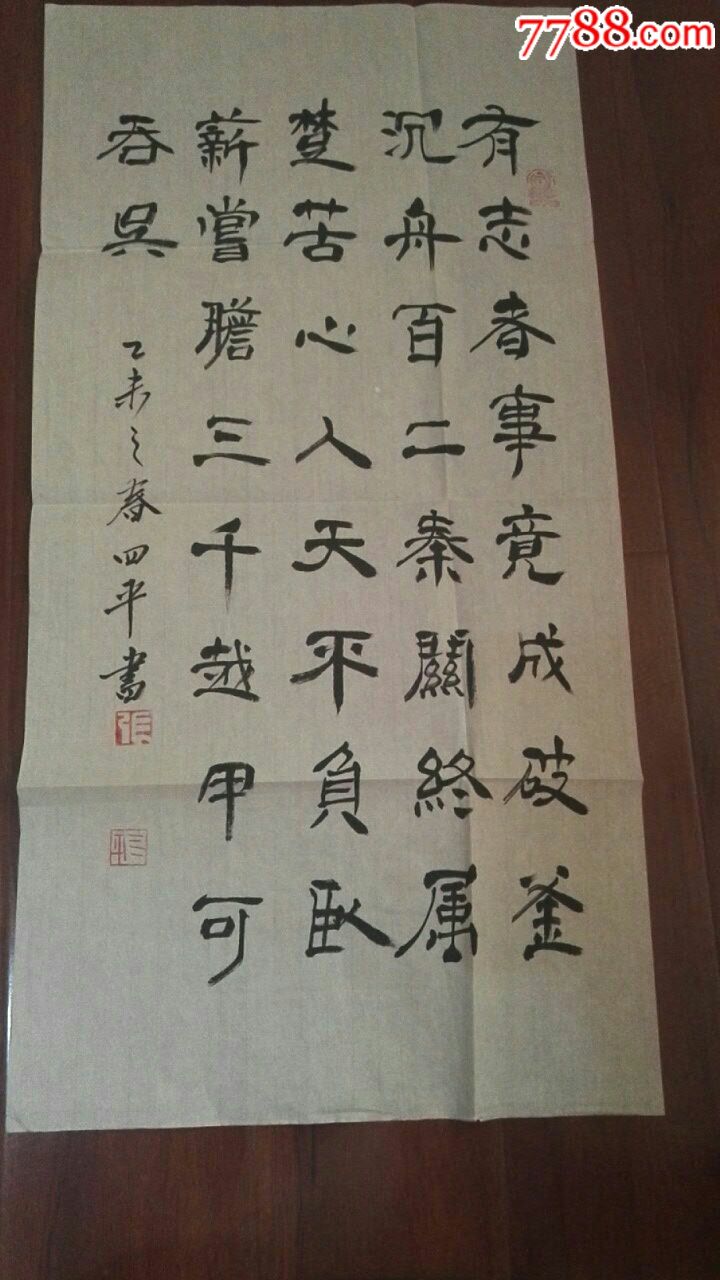 7788.com
有志者事竟成破釜
沉舟百二秦關終属
楚苦心人天不負臥
薪嘗膽三千越甲可
吞吳
乙未之春四平書
張